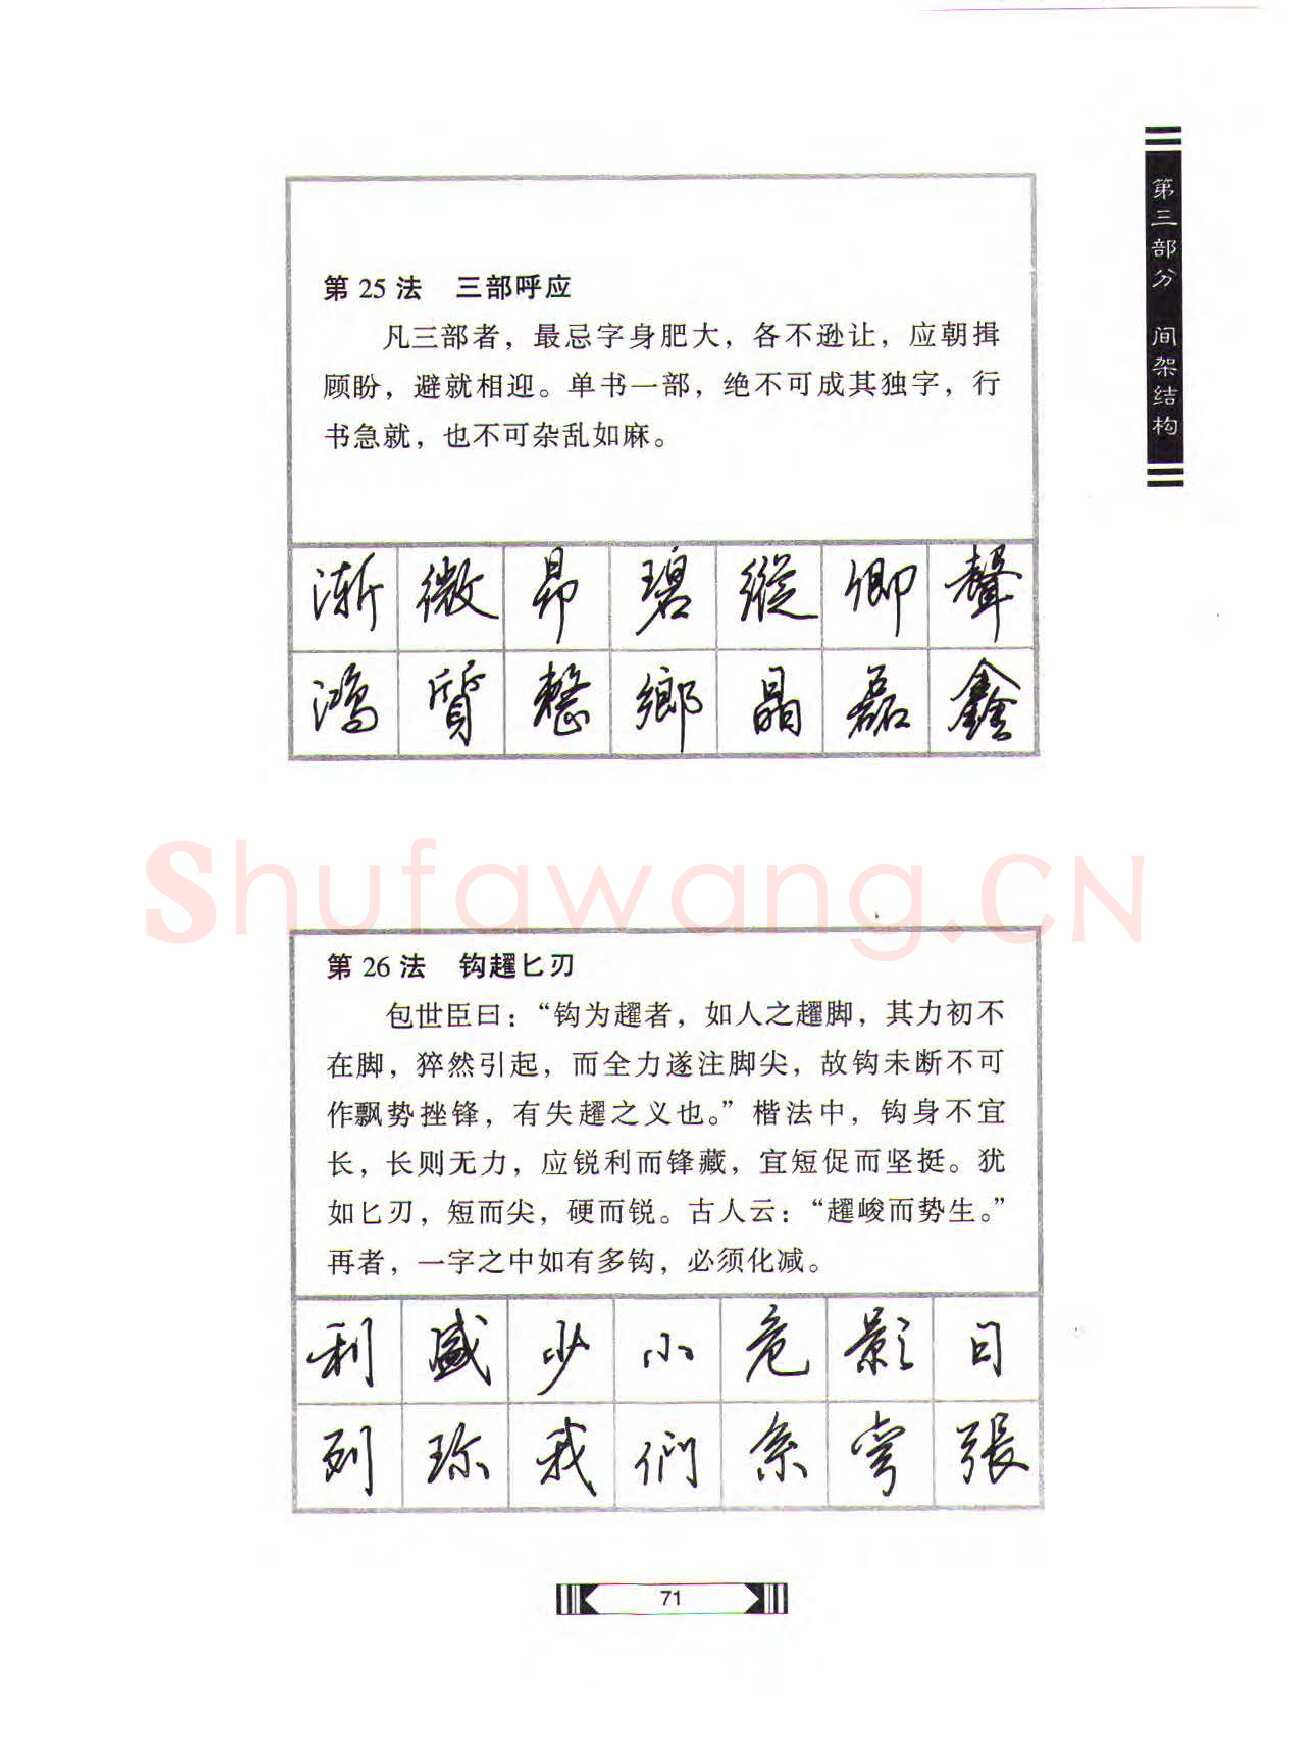 第三部分 间架结构
第25法 三部呼应
凡三部者，最忌字身肥大，各不逊让，应朝揖
顾盼，避就相迎。单书一部，绝不可成其独字，行
书急就，也不可杂乱如麻。
渐 微 昂 碧 縱 卿 聲
鴻 質 整 鄉 晶 磊 鑫
Shufawang.CN
第26法 钩趯匕刃
包世臣曰：“钩为趯者，如人之趯脚，其力初不
在脚，猝然引起，而全力遂注脚尖，故钩未断不可
作飘势挫锋，有失趯之义也。”楷法中，钩身不宜
长，长则无力，应锐利而锋藏，宜短促而坚挺。犹
如匕刃，短而尖，硬而锐。古人云：“趯峻而势生。”
再者，一字之中如有多钩，必须化减。
利 盛 少 小 危 影 日
列 珎 我 們 系 穹 張
71